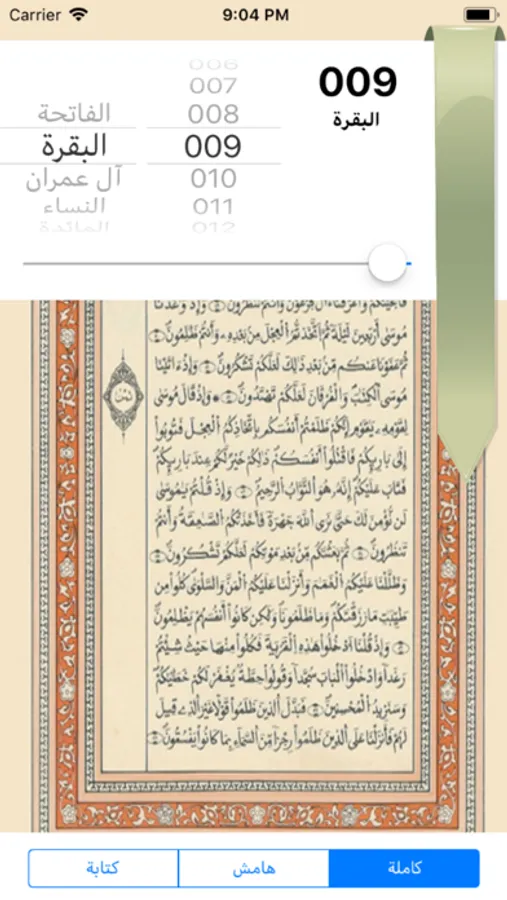 Carrier 9:04 PM
009
البقرة
006
007
الفاتحة 008
البقرة 009
آل عمران 010
النساء 011
المائدة 012
فَأَنجَيْنَٰكُمْ وَأَغْرَقْنَا ءَالَ فِرْعَوْنَ وَأَنتُمْ تَنظُرُونَ وَإِذْ وَٰعَدْنَا
مُوسَىٰ أَرْبَعِينَ لَيْلَةً ثُمَّ اتَّخَذتُّمُ الْعِجْلَ مِنۢ بَعْدِهِۦ وَأَنتُمْ ظَٰلِمُونَ
ثُمَّ عَفَوْنَا عَنكُم مِّنۢ بَعْدِ ذَٰلِكَ لَعَلَّكُمْ تَشْكُرُونَ وَإِذْ ءَاتَيْنَا
مُوسَى الْكِتَٰبَ وَالْفُرْقَانَ لَعَلَّكُمْ تَهْتَدُونَ وَإِذْ قَالَ مُوسَىٰ
لِقَوْمِهِۦ يَٰقَوْمِ إِنَّكُمْ ظَلَمْتُمْ أَنفُسَكُم بِاتِّخَاذِكُمُ الْعِجْلَ فَتُوبُوٓا
إِلَىٰ بَارِئِكُمْ فَاقْتُلُوٓا أَنفُسَكُمْ ذَٰلِكُمْ خَيْرٌ لَّكُمْ عِندَ بَارِئِكُمْ
فَتَابَ عَلَيْكُمْ إِنَّهُۥ هُوَ التَّوَّابُ الرَّحِيمُ وَإِذْ قُلْتُمْ يَٰمُوسَىٰ
لَن نُّؤْمِنَ لَكَ حَتَّىٰ نَرَى اللَّهَ جَهْرَةً فَأَخَذَتْكُمُ الصَّٰعِقَةُ وَأَنتُمْ
تَنظُرُونَ ثُمَّ بَعَثْنَٰكُم مِّنۢ بَعْدِ مَوْتِكُمْ لَعَلَّكُمْ تَشْكُرُونَ
وَظَلَّلْنَا عَلَيْكُمُ الْغَمَٰمَ وَأَنزَلْنَا عَلَيْكُمُ الْمَنَّ وَالسَّلْوَىٰ كُلُوا مِن
طَيِّبَٰتِ مَا رَزَقْنَٰكُمْ وَمَا ظَلَمُونَا وَلَٰكِن كَانُوٓا أَنفُسَهُمْ يَظْلِمُونَ
وَإِذْ قُلْنَا ادْخُلُوا هَٰذِهِ الْقَرْيَةَ فَكُلُوا مِنْهَا حَيْثُ شِئْتُمْ
رَغَدًا وَادْخُلُوا الْبَابَ سُجَّدًا وَقُولُوا حِطَّةٌ يُغْفَرْ لَكُمْ خَطَٰيَٰكُمْ
وَسَنَزِيدُ الْمُحْسِنِينَ فَبَدَّلَ الَّذِينَ ظَلَمُوا قَوْلًا غَيْرَ الَّذِي قِيلَ
لَهُمْ فَأَنزَلْنَا عَلَى الَّذِينَ ظَلَمُوا رِجْزًا مِّنَ السَّمَآءِ بِمَا كَانُوا يَفْسُقُونَ
ثمن
كاملة
هامش
كتابة